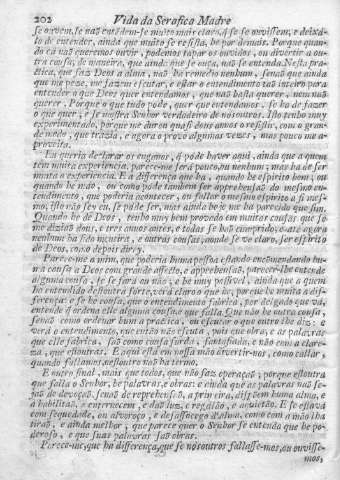 202 Vida da Serafica Madre
se ouvem, se naõ entendem-se muito mais claro, q̃ se se ouvissem, e deixá-
lo de entender, ainda que muito se resista, he por demais. Porque quan-
do cà naõ queremos ouvir, podemos tapar os ouvidos, ou divertir a ou-
tra cousa, de maneira, que ainda que se ouça, naõ se entenda. Nesta pra-
ctica, que faz Deos à alma, naõ ha remedio nenhum, senaõ que ainda
que me peze, me fazem escutar, e estar o entendimento taõ inteiro para
entender o que Deos quer entendamos, que naõ basta querer, nem naõ
querer. Porque o que tudo pode, quer que entendamos se ha de fazer
o que quer, e se mostra Senhor verdadeiro de nosoutros. Isto tenho muy
experimentado, porque me durou quasi dous annos o resistir, com o gran-
de medo, que trazia, e agora o provo algumas vezes, mas pouco me a-
proveita.
Eu queria declarar os enganos, q̃ pode haver aqui, ainda que a quem
tem muita experiencia, pareceme serà pouco, ou nenhum; mas ha de ser
muita a experiencia. E a differença que ha, quando he espirito bom, ou
quando he mào, ou como pode tambem ser apprehensaõ do mesmo en-
tendimento, que poderia acontecer, ou fallar o mesmo espirito a si mes-
mo; isto naõ sey eu, se póde ser, mas ainda hoje me ha parecido que sim.
Quando he de Deos, tenho muy bem provado em muitas cousas que se
me diziaõ dous, e tres annos antes, e todas se haõ cumprido, e até agora
nenhuma ha sido mentira, e outras cousas, aonde se ve claro, ser espirito
de Deos, como depois direy.
Pareceme a mim, que poderia huma pessoa estando encomendando hu-
ma cousa a Deos com grande affecto, e apprehensaõ, parecer-lhe entende
alguma cousa, se se fará ou naõ; e he muy possivel, ainda que a quem
ha entendido destoutra sorte, verá claro o que he, porque he muita a dif-
ferença: e se he cousa, que o entendimento fabrica, por delgado que vá,
entende q̃ ordena elle alguma cousa e que falla. Que naõ he outra cousa,
senaõ como ordenar hum a practica, ou escutar o que outro lhe diz: e
verá o entendimento, que entaõ naõ escuta, pois que obra, e as palavras
que elle fabrica, saõ como cousa surda, fantasiada, e naõ com a clare-
za, que estoutras. E aqui està em nossa maõ divertir-nos, como callar,
quando fallamos, nestoutro naõ ha termo.
E outro sinal, mais que todos, que naõ faz operaçaõ; porque estoutra
que falla o Senhor, he palavras, e obras: e ainda que as palavras naõ se-
jaõ de devoçaõ, senaõ de reprehensaõ, a primeira, dispõem huma alma, e
a habilitaõ, e enternecem, e daõ luz, e regalaõ, e aquietaõ. E se estava
com sequedade, ou alvoroço, e desassocego d'alma, como com a maõ lha
tiraõ, e ainda melhor; que parece quer o Senhor se entenda que he po-
deroso, e que suas palavras saõ obras.
Parece-me, que ha differença, que se nosoutros fallasse-mos, ou ouvisse-
mos,